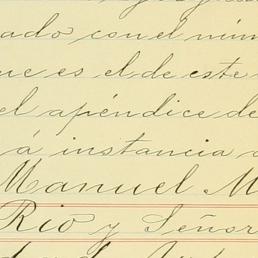 ado con el núm
ue es el de este
el apéndice de
á instancia
Manuel M
Rio y Señor